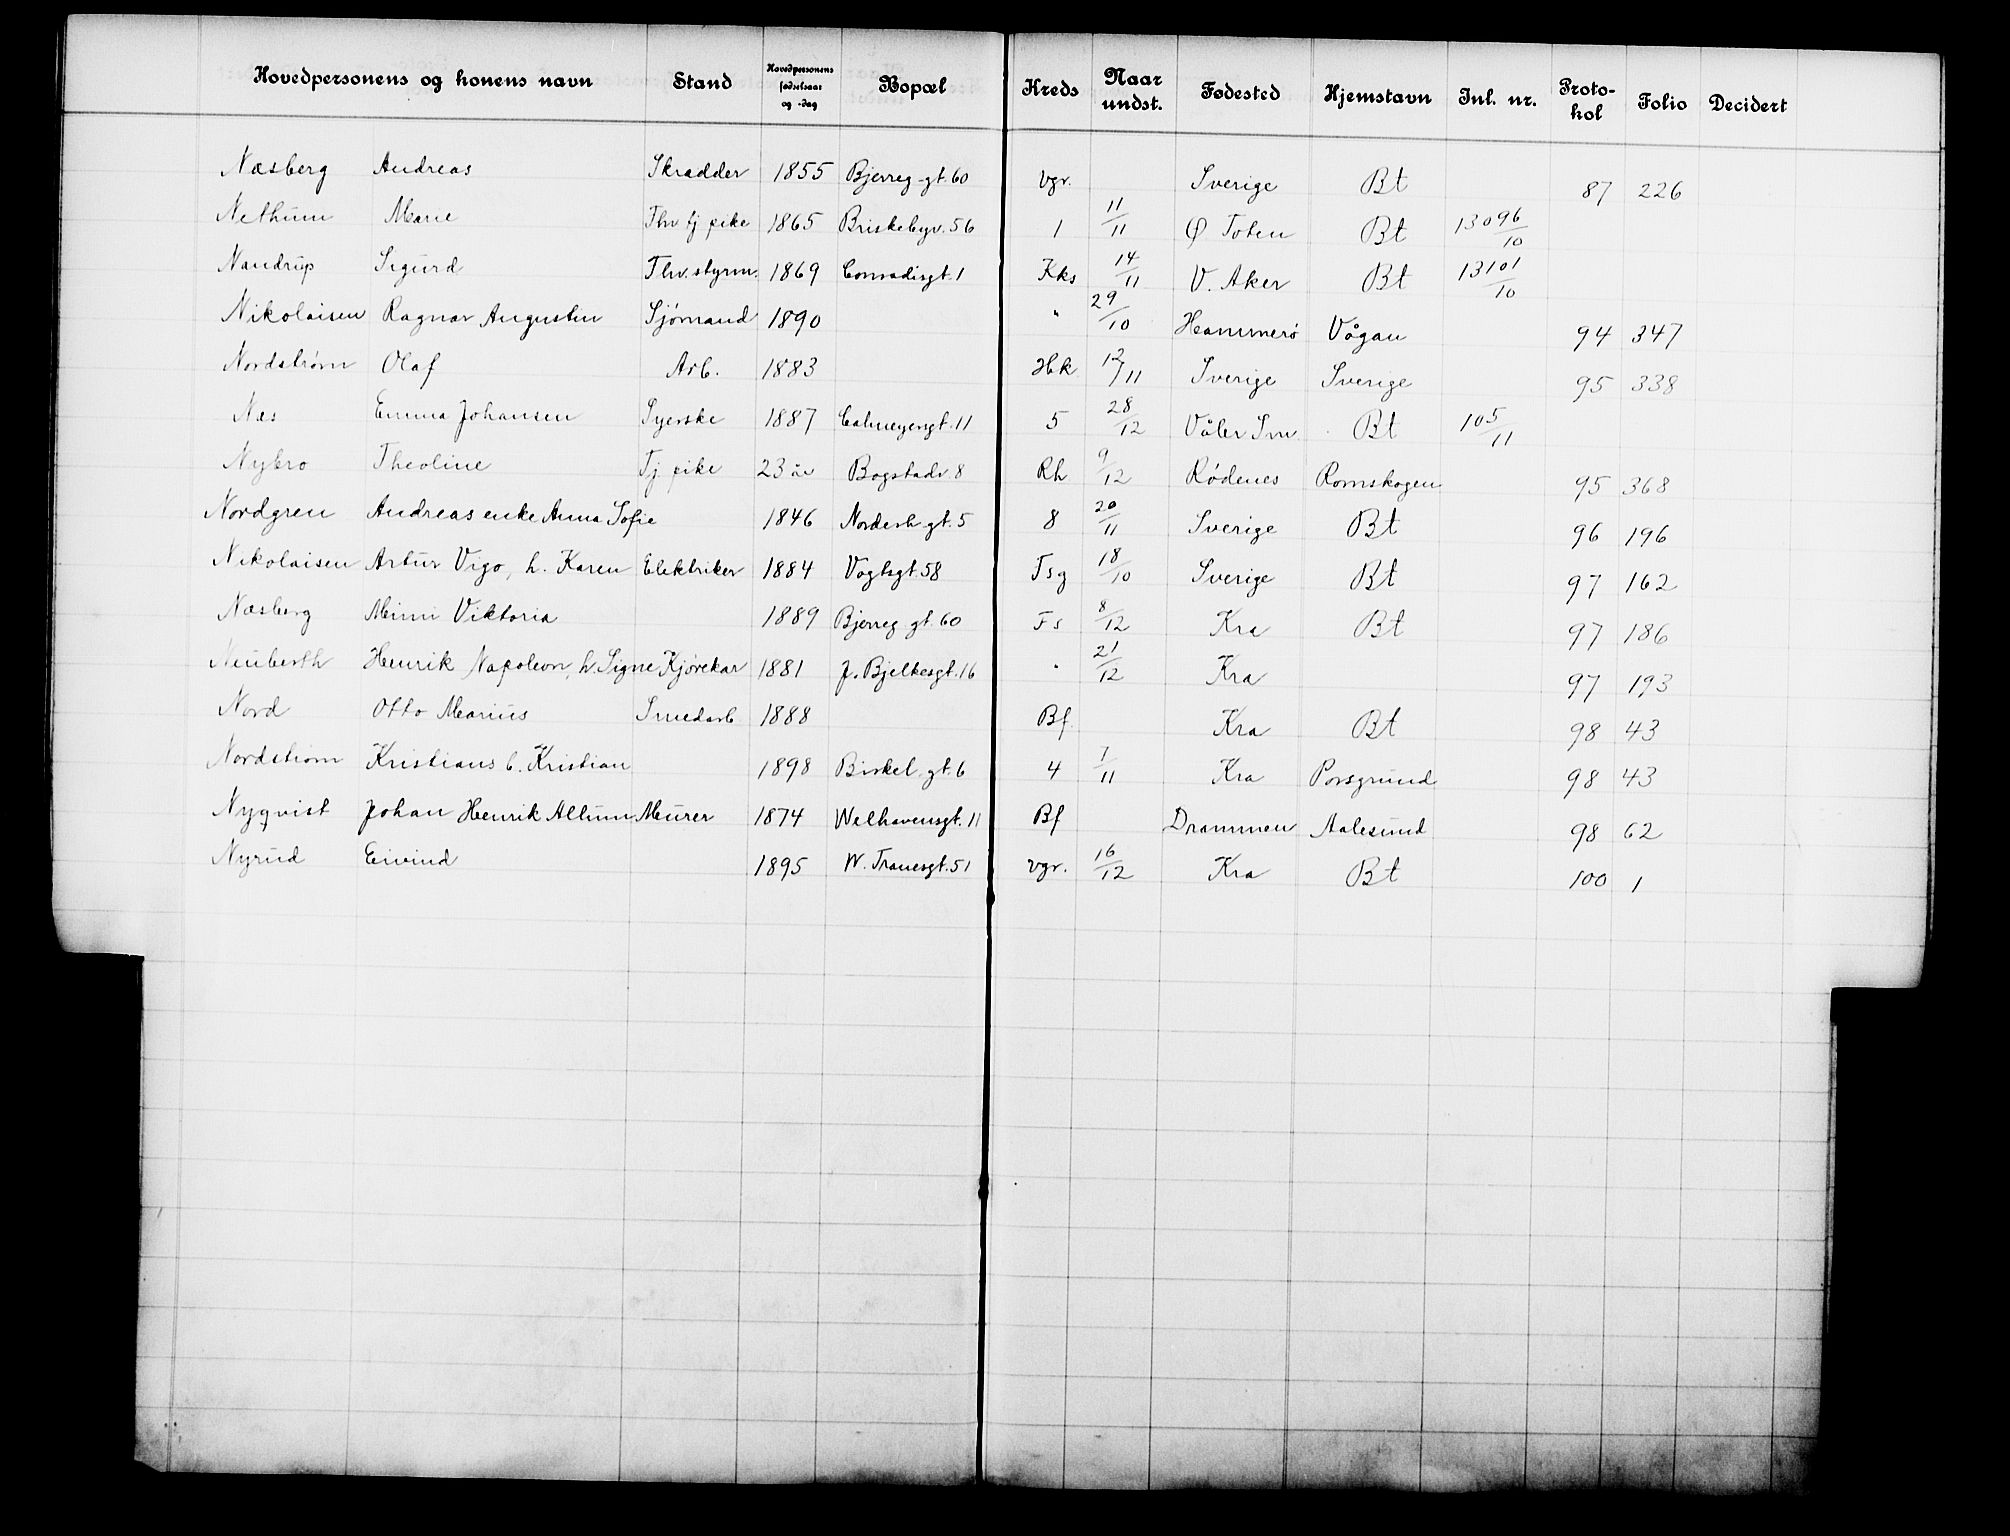 Hovedpersonens og konens navn Stand Hovedpersonens fødselsaar og -dag Bopæl Kreds Naar undst. Fødested Hjemstavn Inl. nr. Protokol Folio Decidert
Næsberg Andreas Skradder 1855 Bjerreg-gt. 60 Vgr. Sverige Bt 87 226
Nethum Marie Fhv tj pike 1865 Briskebyv. 56 1 11/11 Ø Toten Bt 13096/10
Nandrup Sigurd Fhv. styrm. 1869 Conradisgt. 1 Kks 14/11 V. Aker Bt 13101/10
Nikolaisen Ragnar Augustin Sjømand 1890 " 29/10 Hammerø Vågan 94 347
Nordstrøm Olaf Arb. 1883 Hk 12/11 Sverige Sverige 95 338
Næs Emma Johansen Syerske 1887 Calmeyergt. 11 5 28/12 Våler Bt 105/11
Nybro Theoline Tj. pike 23 år Bogstadv. 8 Rh 9/12 Rødenes Romskogen 95 368
Nordgren Andreas enke Anna Sofie 1846 Norderh. gt. 5 8 20/11 Sverige Bt 96 196
Nikolaisen Artur Vigo, h. Karen Elektriker 1884 Vogtsgt. 58 Tsg 18/10 Sverige Bt 97 162
Næsberg Mimi Viktoria 1889 Bjerreg gt. 60 Fs 8/12 Kra Bt 97 186
Neuberth Henrik Napoleon, h. Signe Kjørekar 1881 J. Bjelkesgt. 16 " 21/12 Kra 97 193
Nord Otto Marius Smedarb 1888 Bf. Kra Bt 98 43
Nordstrøm Kristians b. Kristian 1898 Birkel. gt. 6 4 7/11 Kra Porsgrund 98 43
Nyqvist Johan Henrik Allum Murer 1874 Welhavensgt. 11 Bf Drammen Aalesund 98 62
Nyrud Eivind 1895 W. Tranesgt. 51 Vgr. 16/12 Kra Bt 100 1